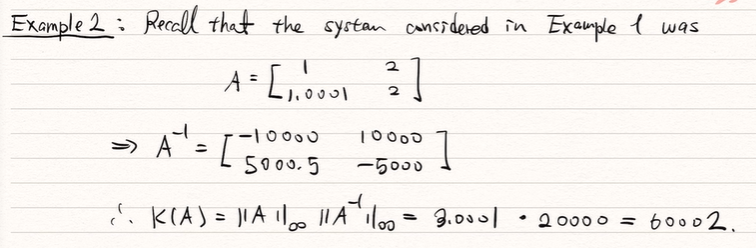 Example 2 : Recall that the system considered in Example 1 was
A = [ 1 2
1.0001 2 ]
⇒ A⁻¹ = [ -10000 10000
5000.5 -5000 ]
∴ K(A) = ||A||∞ ||A⁻¹||∞ = 3.0001 · 20000 = 60002.